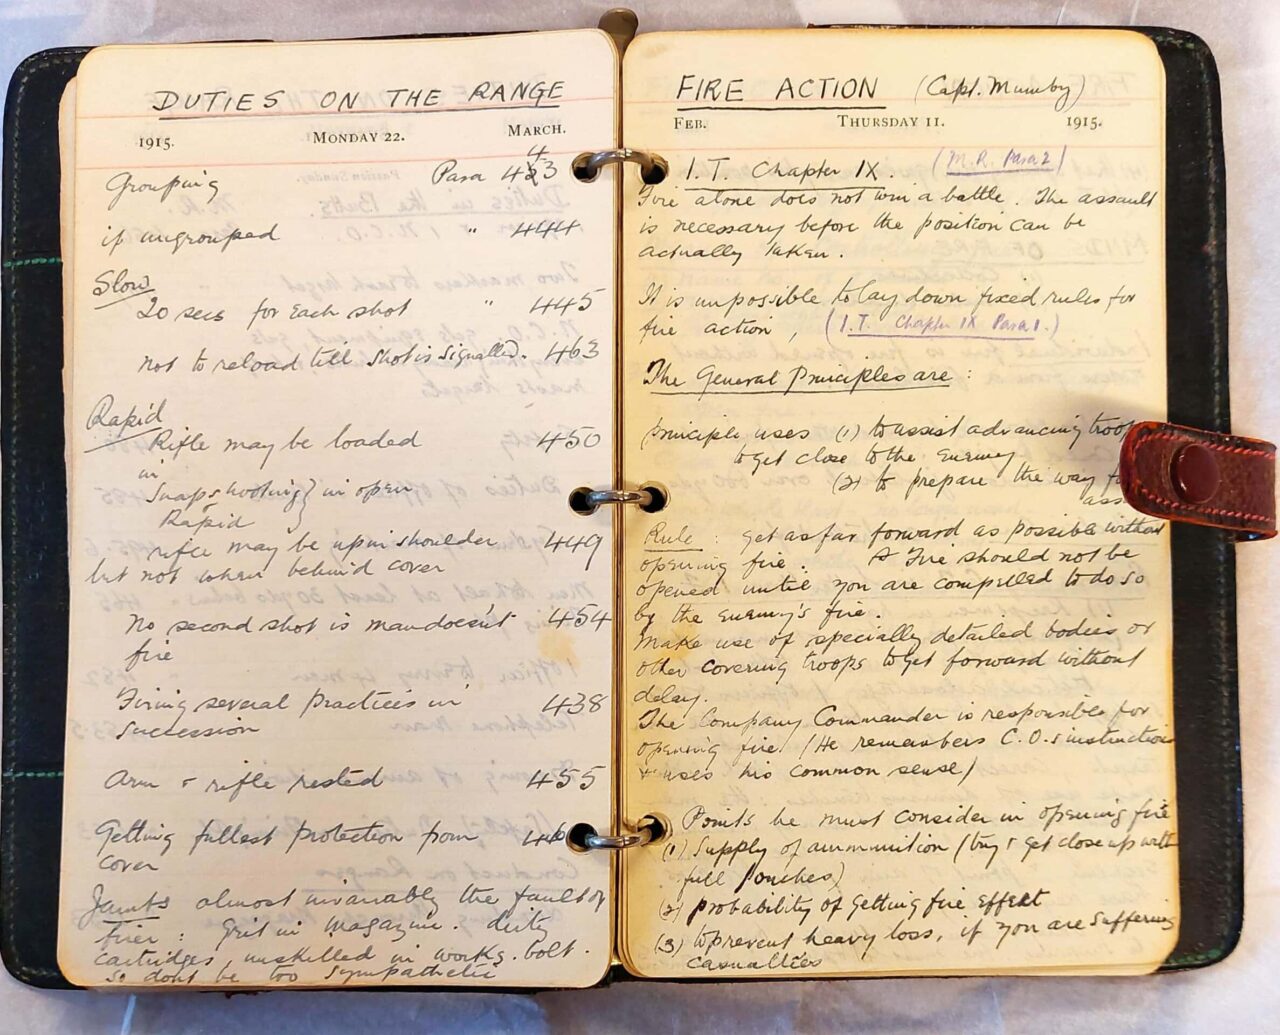 DUTIES ON THE RANGE
1915. MONDAY 22. MARCH.
Grouping Para 443
if ungrouped " 444
Slow
20 secs for Each shot " 445
not to reload till shot is signalled. 463
Rapid
Rifle may be loaded 450
in
Snapshooting } in open
or
Rapid
rifle may be upin shoulder 449
but not when behind cover
No second shot is man doesn't 454
fire
Firing several Practices in 438
Succession
Arm & rifle rested 455
Getting fullest protection from 446
cover
Jambs almost invariably the fault of
firer : Grit in Magazine. dirty
cartridges, unskilled in workg. bolt.
so dont be too sympathetic
FIRE ACTION (Capt. Mumby)
FEB. THURSDAY 11. 1915.
I.T. Chapter IX. (M.R. Para 2)
Fire alone does not win a battle. The assault
is necessary before the position can be
actually taken.
It is impossible to lay down fixed rules for
fire action, (I.T. Chapter IX Para 1.)
The General Principles are :
principle uses (1) to assist advancing troo
to get close to the Enemy
(2) to prepare the way f
ass
Rule : Get as far forward as possible without
opening fire. Fire should not be
opened until you are compelled to do so
by the Enemy's fire.
Make use of specially detailed bodies or
other covering troops to get forward without
delay.
The Company Commander is responsible for
opening fire (He remembers C.O.s instructions
& uses his common sense)
Points he must consider in opening fire
(1) Supply of ammunition (try & get close up with
full Pouches)
(2) probability of Getting fire Effect
(3) to prevent heavy loss, if you are suffering
casualties